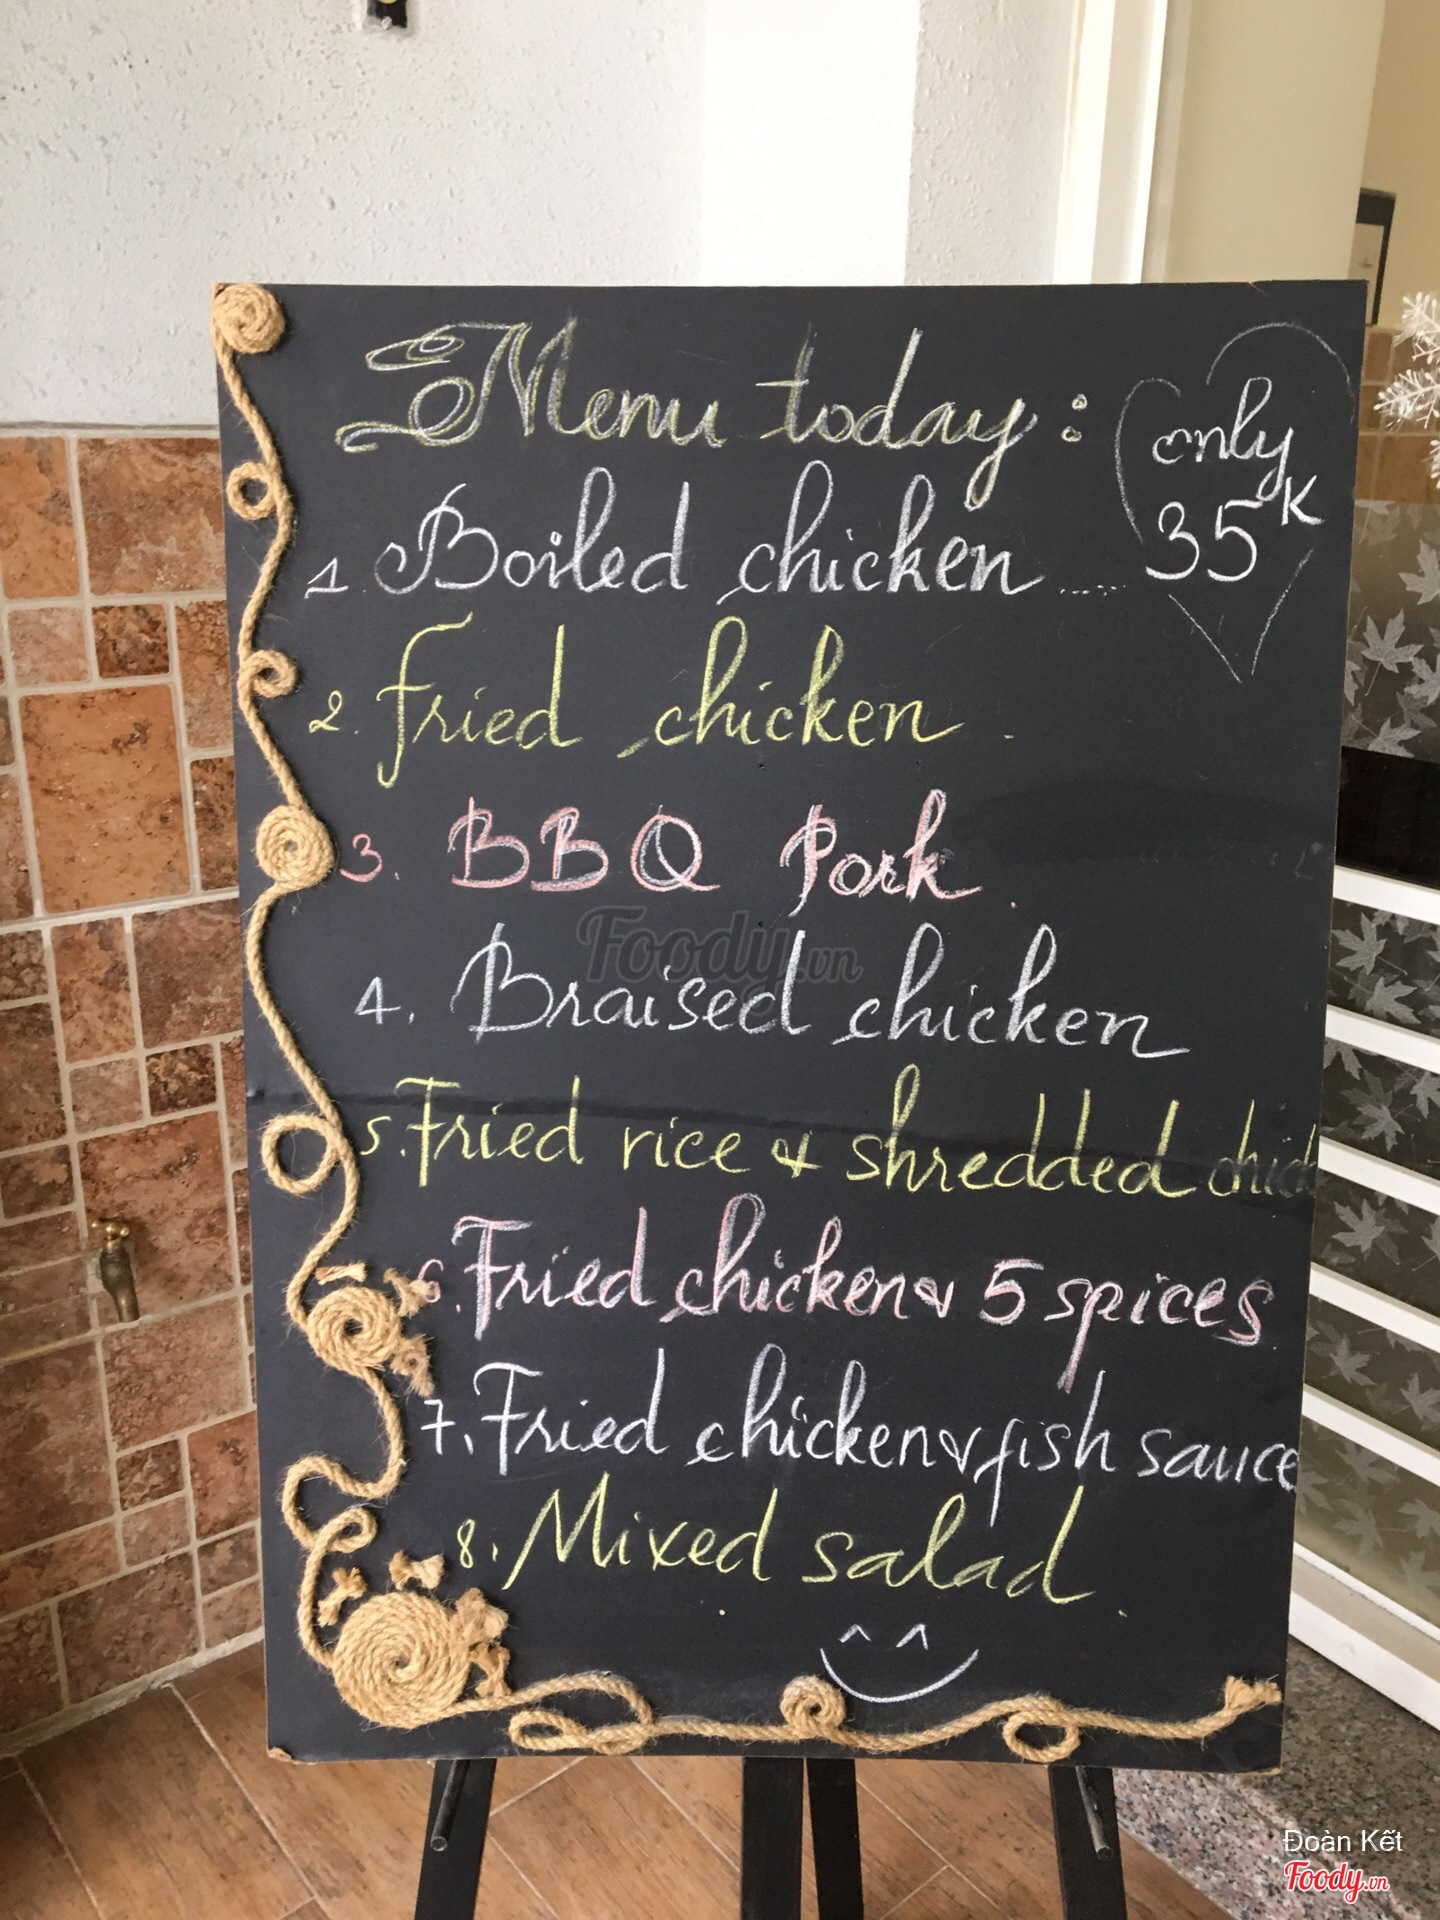 Menu today :
only
35K
1. Boiled chicken .....
2. Fried chicken
3. BBQ Pork
4. Braised chicken
5. Fried rice & shredded chick
6. Fried chicken & 5 spices
7. Fried chicken & fish sauce
8. Mixed salad
Foody.vn
Đoàn Kết
Foody.vn